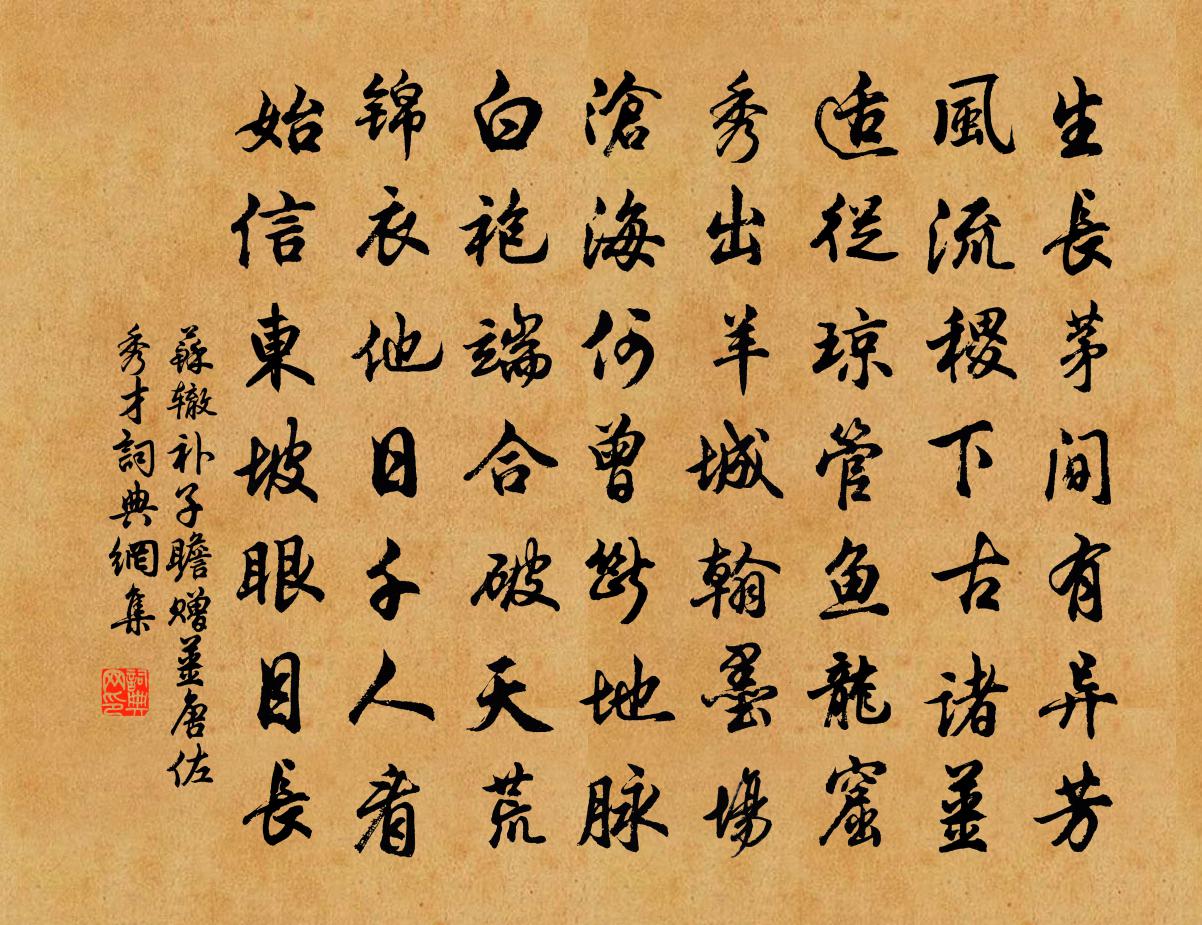 生長茅間有异芳
風流稷下古諸薑
适從琼管鱼龍窟
秀出羊城翰墨場
滄海何曾斷地脉
白袍端合破天荒
锦衣他日千人看
始信東坡眼目長
蘇辙补子瞻赠薑唐佐
秀才詞典網集
詞典网印